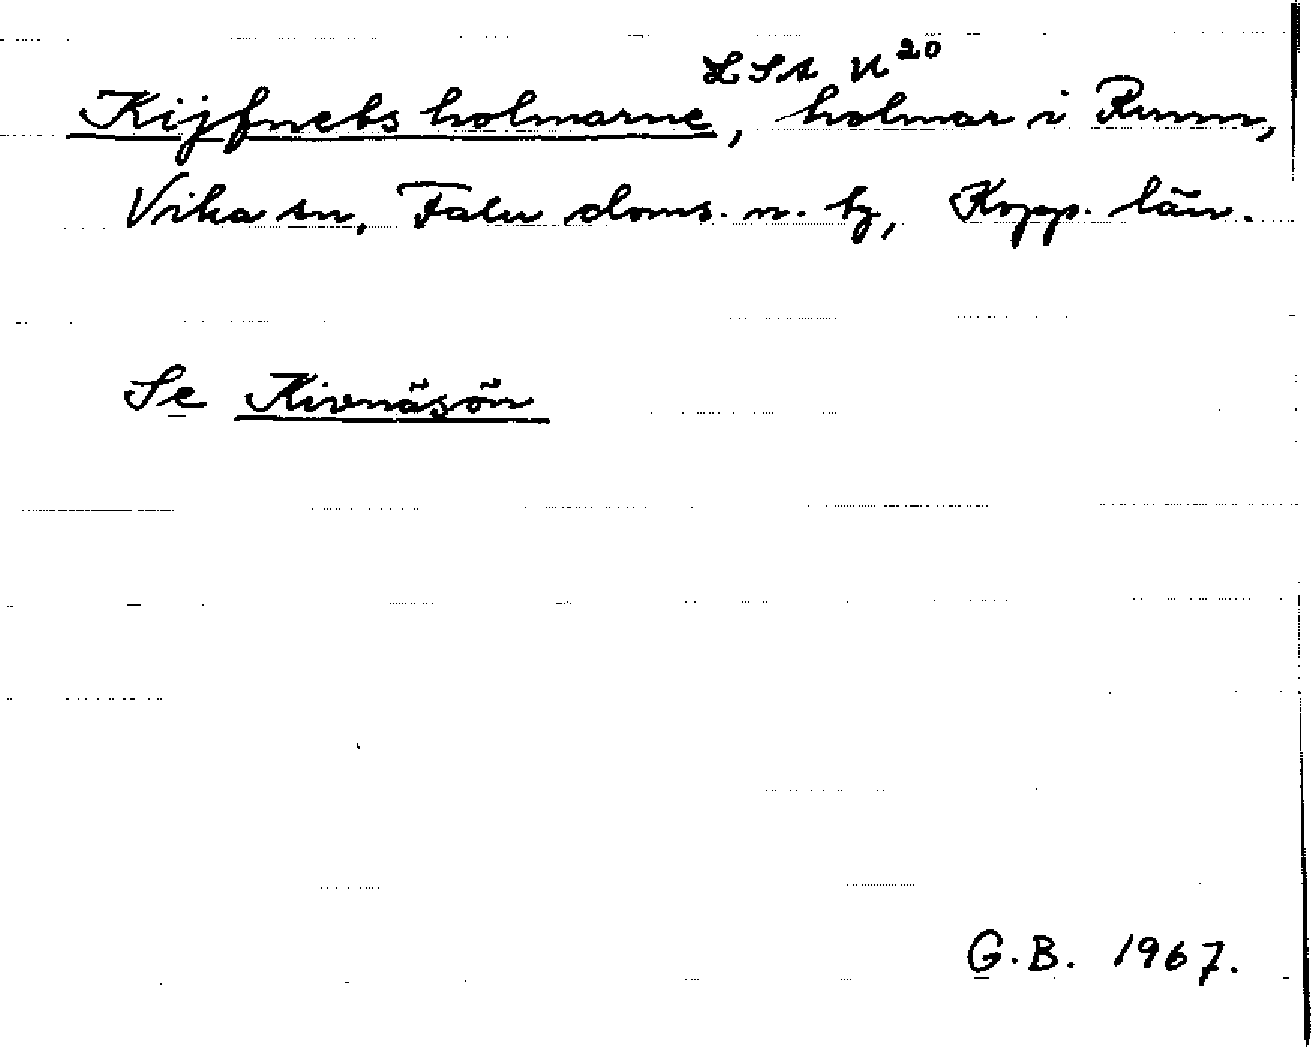 LSA U 20
Kijfnebs holmarne, holmar i Runn,
Vika sn, Falu doms. n. tg, Kopp. län.
Se Kivnäsön
G.B. 1967.